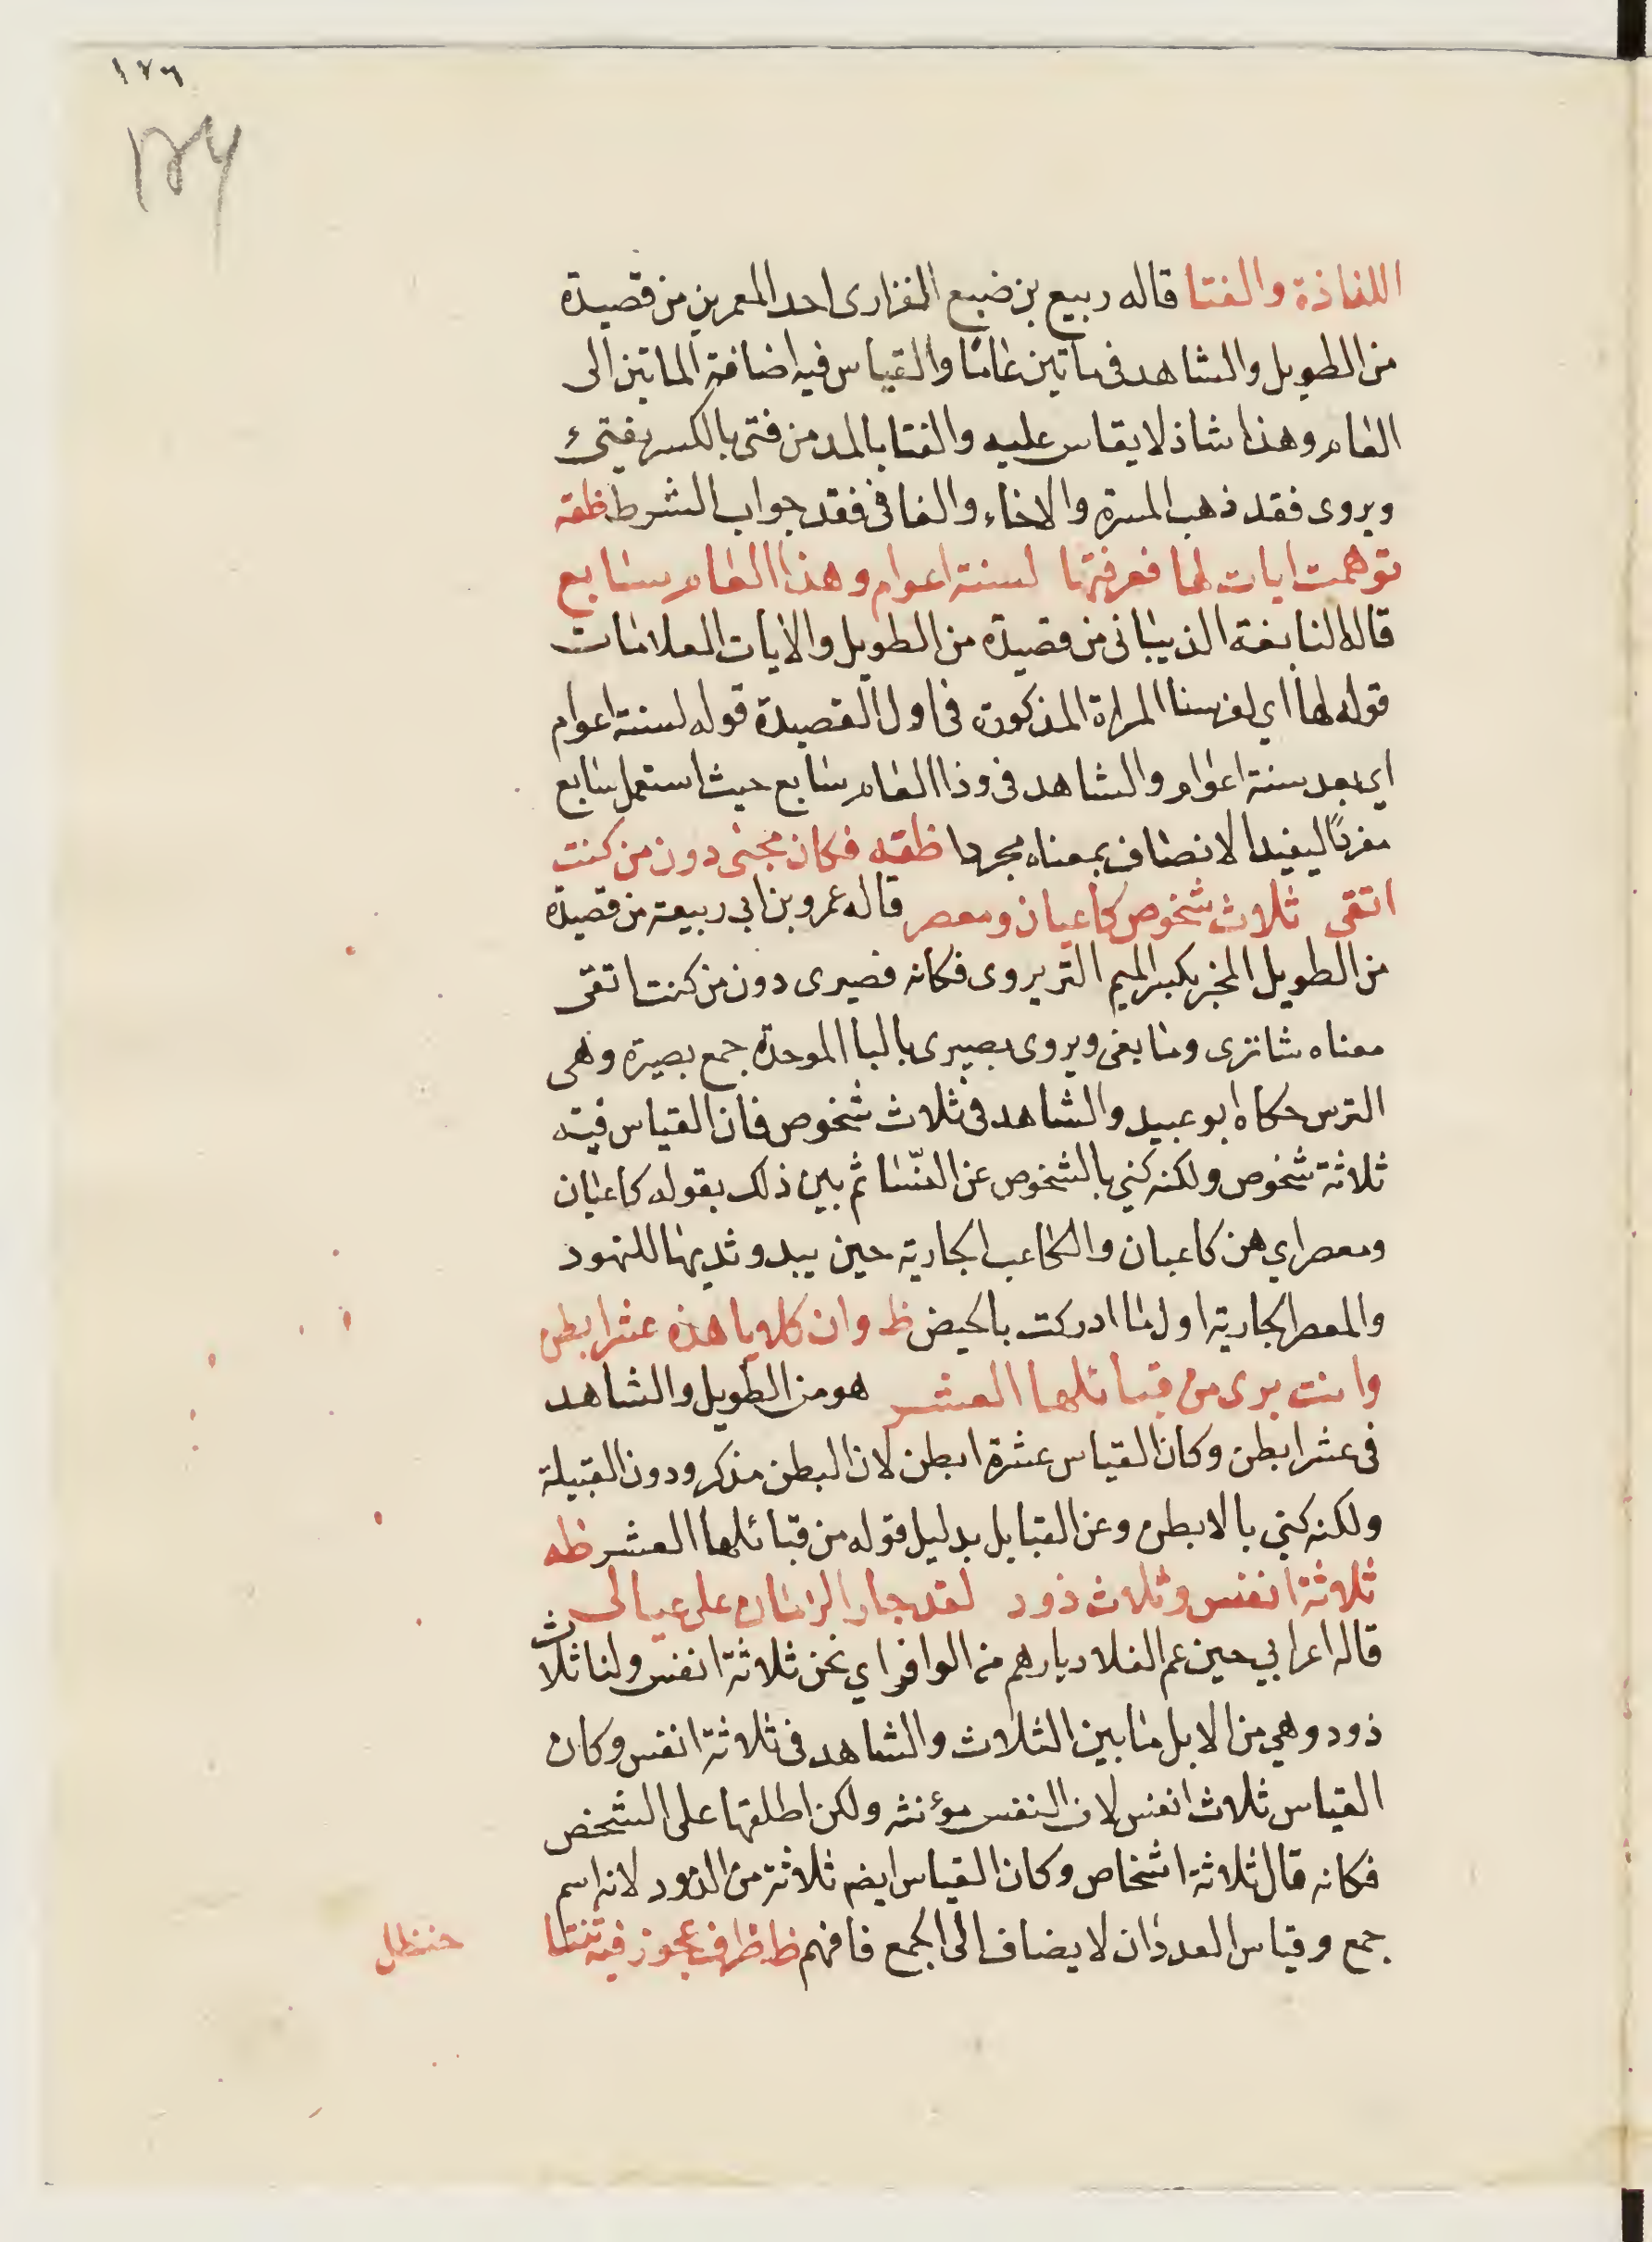 ١٧٦
١٧٦
اللذاذة والفتا قاله ربيع بن ضبيع الفزارى احد المعمرين من قصيدة
من الطويل والشاهد فى مأتين عامًا والقياس فيه اضافة الماتين الى
العام وهذا شاذ لا يقاس عليه والفتا بالمد من فتى بالكسر يفتئ
ويروى فقد ذهب المسرة والاخاء والفا فى فقد جواب الشرط ظقه
توهمت ايات لها فعرفتها لستة اعوام وهذا العام سابع
قاله النابغة الذبيانى من قصيدة من الطويل والايات العلامات
قوله لها اي لفرسنا المراة المذكورة فى اول القصيدة قوله لستة اعوام
اي بعد ستة اعوام والشاهد فى وذا العام سابع حيث استعمل سابع
مفردًا ليفيد الاتصاف بمعناه مجردا ظقه فكان مجنى دون من كنت
اتقى ثلاث شخوص كاعبان ومعصر قاله عمرو بن ابى ربيعة من قصيدة
من الطويل المجن بكسر الميم الترس يروى فكانه قصيرى دون من كنت اتقى
معناه شاتزى وما بغى ويروى بصيرى بالبا الموحدة جمع بصيرة وهى
الترس حكاه ابو عبيد والشاهد فى ثلاث شخوص فان القياس فيه
ثلاثة شخوص ولكنه كني بالشخوص عن النسا ثم بين ذلك بقوله كاعبان
ومعصر اي هن كاعبان والكاعب الجارية حين يبدو ثديها للنهود
والمعصر الجارية اول ما ادركت بالحيض ظ وان كلابا هذه عشر ابطن
وانت برى من قبائلها العشر هو من الطويل والشاهد
فى عشر ابطن وكان القياس عشرة ابطن لان البطن مذكر ودون القبيلة
ولكنه كني بالابطن وعن القبايل بدليل قوله من قبائلها العشر ظه
ثلاثة انفس وثلاث ذود لقد جار الزمان على عيالى
قاله اعرابي حين عم الغلا ديارهم من الوافر اي نحن ثلاثة انفس ولنا ثلاث
ذود وهي من الابل ما بين الثلاث والشاهد فى ثلاثة انفس وكان
القياس ثلاث انفس لان النفس مؤنثه ولكن اطلقها على الشخص
فكانه قال ثلاثة اشخاص وكان القياس ايضه ثلاثة من الذود لانه اسم
جمع وقياس العدد ان لا يضاف الى الجمع فافهم ظ ظرف عجوز فيه ثنتا
حنظل